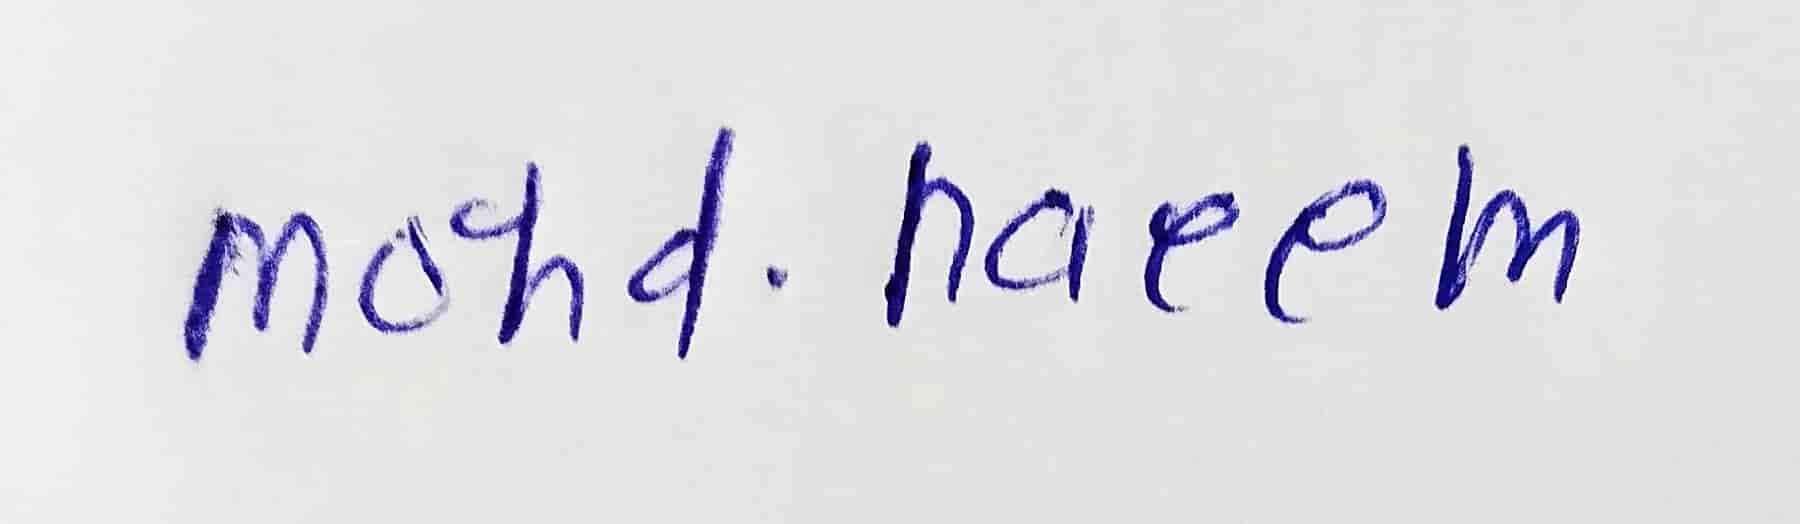 mohd. naeem